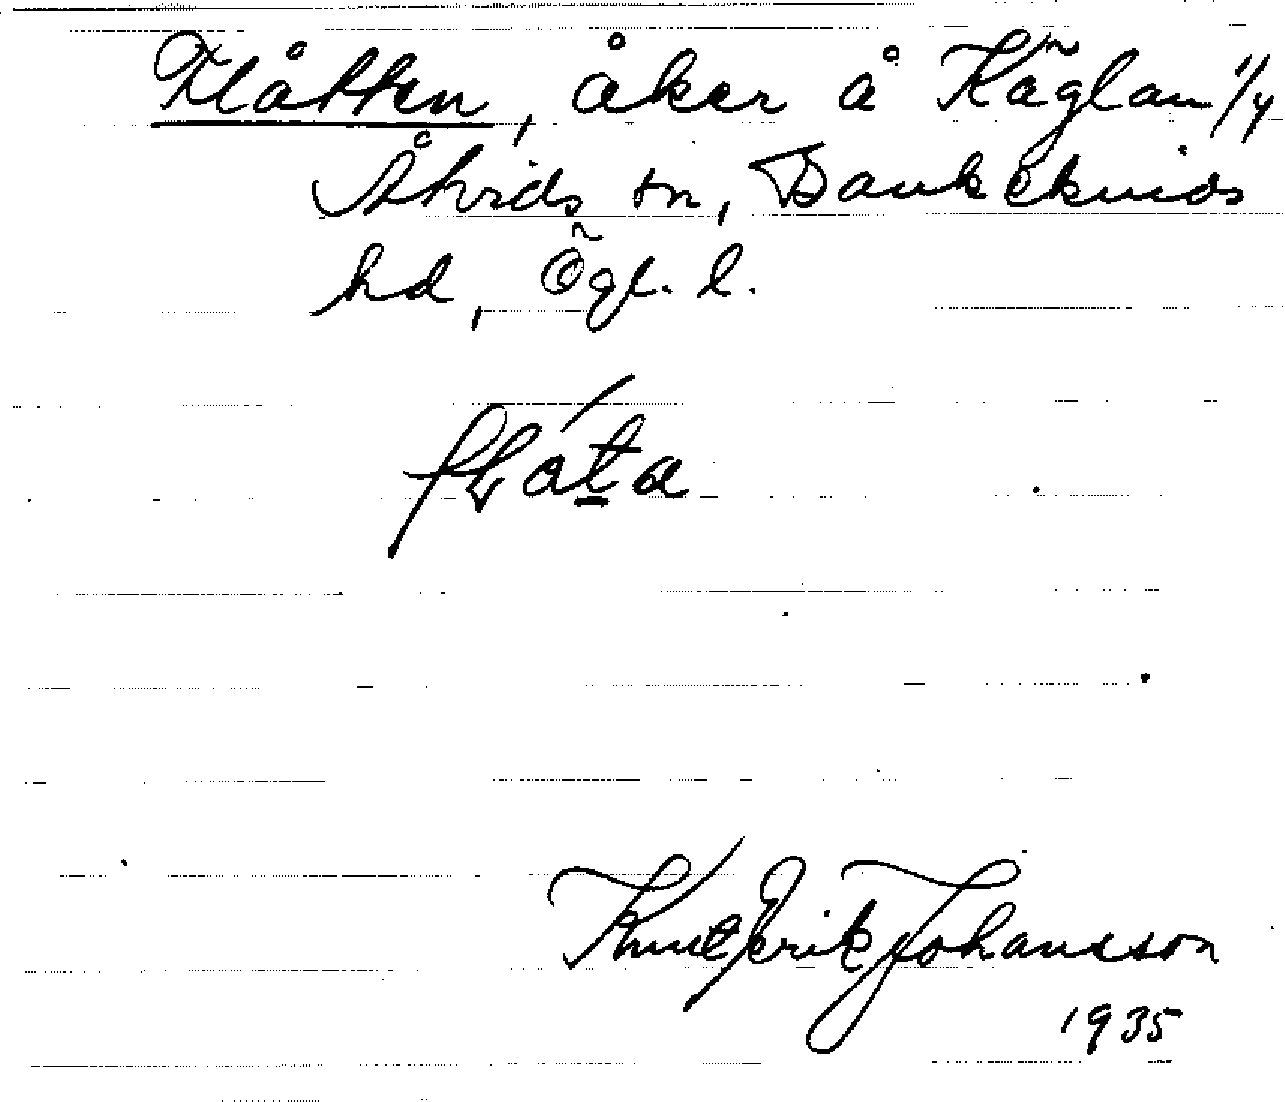 Flåtten, åker å Häglan 1/4
Åtvids sn, Bankekinds
hd, Ögl. l.
fɫáta
Knut Erik Johansson
1935